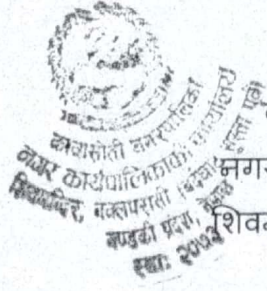 कावासोती नगरपालिका
नगर कार्यपालिकाको कार्यालय
शिवमन्दिर, नवलपरासी (बर्दघाट सुस्ता पूर्व)
गण्डकी प्रदेश, नेपाल
स्था: २०७३
नगर
शिवम